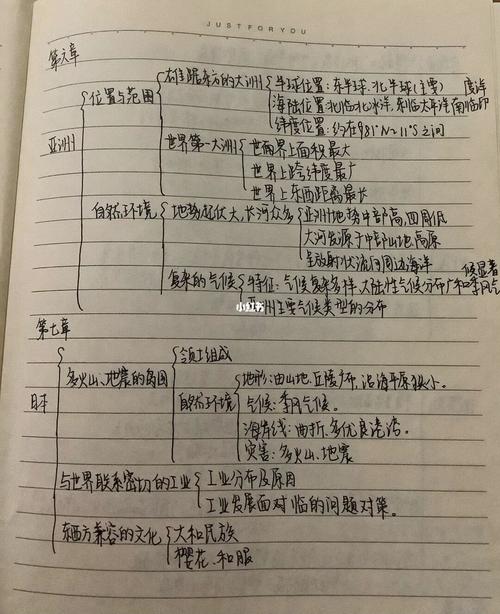 JUST FOR YOU
第六章
亚洲
位置与范围
雄踞东方的大洲
半球位置:东半球、北半球(主要)
海陆位置:北临北冰洋,东临太平洋,南临印度洋
纬度位置:约在81°N~11°S之间
世界第一大洲
世界上面积最大
世界上跨纬度最广
世界上东西距离最长
自然环境
地势起伏大,长河众多
亚洲地势中部高,四周低
大河发源于中部山地、高原
呈放射状流向周边海洋
复杂的气候
特征:气候复杂多样,大陆性气候分布广和季风气候显著
亚洲主要气候类型的分布
小红书
第七章
日本
多火山、地震的岛国
领土组成
自然环境
地形:由山地、丘陵广布,沿海平原狭小。
气候:季风气候。
海岸线:曲折、多优良港湾。
灾害:多火山、地震
与世界联系密切的工业
工业分布及原因
工业发展面对临的问题对策。
东西方兼容的文化
大和民族
樱花、和服